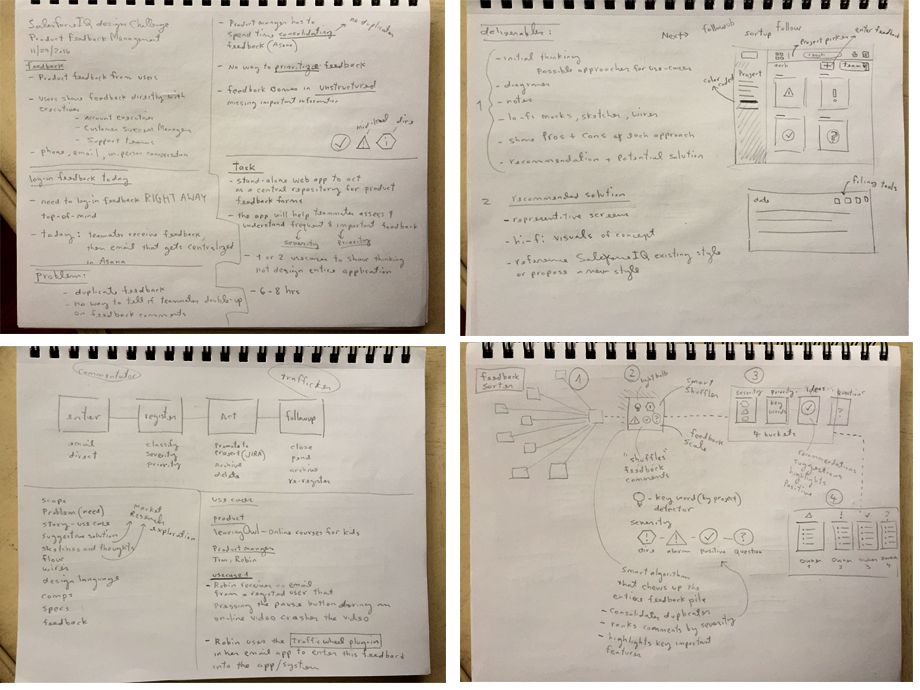 SalesforceIQ design challenge
Product Feedback Management
feedback
- Product feedback from users
- Users share feedback directly with
executives
- account executives
- Customer Success Manager
- Support teams
- phone, email, in-person conversation
log-in feedback today
- need to log-in feedback RIGHT AWAY
top-of-mind
- today: teammate receive feedback,
then email that gets centralized
in Asana
problem:
- duplicate feedback
- no way to tell if teammates double-up
on feedback comments
- Product manager has to
spend time consolidating
feedback (Asana)
no duplicates
- No way to prioritize feedback
- feedback comes in unstructured
missing important information
mid-level
dire
Task
- stand-alone web app to act
as a central repository for product
feedback
- the app will help teammates assess &
understand frequent & important feedback
severity
priority
- 1 or 2 usecases to show thinking
not design entire application
- 6-8 hrs
deliverables:
1
- initial thinking
possible approaches for use-cases
- diagrams
- notes
- lo-fi mocks, sketches, wires
- share pros + cons of each approach
- recommendation + potential solution
2
recommended solution
- representitive screens
- hi-fi visuals of concept
- reference SalesforceIQ existing style
or propose a new style
Next>
followup
sortup follow
project picker
enter feedback
color-coded
Project
team
date
filing tools
commentator
trafficker
enter
register
Act
followup
email
direct
classify
severity
priority
promote to
project (JIRA)
archive
delete
close
pend
archive
re-register
scope
Problem (need)
story - use case
suggestive solution
sketches and thoughts
flow
wires
design language
comps
specs
feedback
market
Research
exploration
use cases
product
learningOwl - online courses for kids
Product manager
Tim, Robin
usecase 1
- Robin receives an email
from a registed user that
pressing the pause button during an
on-line video crashes the video
- Robin uses the trafficwheel plug-in
in her email app to enter this feedback
into the app/system
feedback
sorter
1
2
3
4
light bulb
Smart
Shuffles
feedback
scale
"shuffles"
feedback
comments
- key word (by project)
detector
severity
dire
alarm
positive
Question
severity
priority
ideas
Question
key
words
4 buckets
recommendations
suggestions
highlights
positive
owner
1
owner
2
owner
3
owner
4
Smart algorithm
that chews up the
entire feedback pile
- consolidates duplicates
- ranks comments by severity
- highlights key important
features